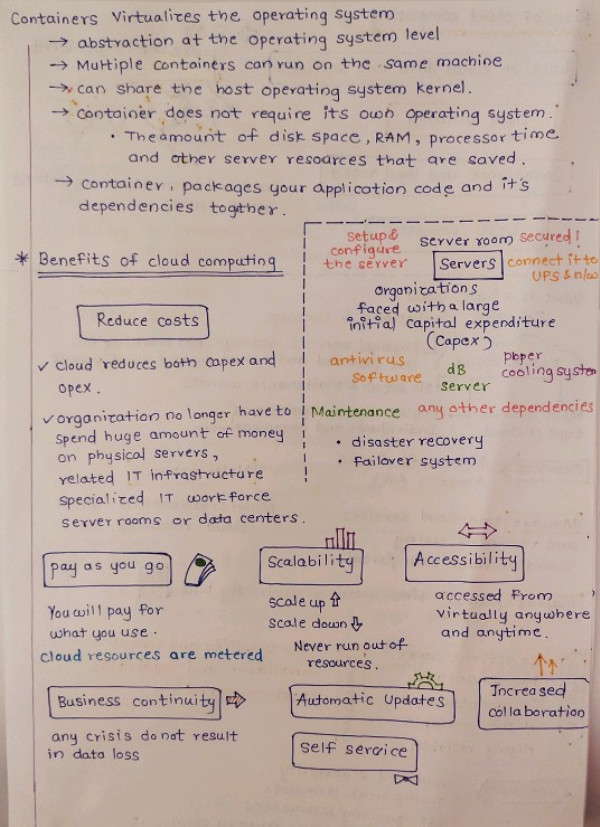 Containers Virtualizes the operating system
→ abstraction at the operating system level
→ Multiple containers can run on the same machine
→ can share the host operating system kernel.
→ container does not require its own operating system.
• The amount of disk space, RAM, processor time
and other server resources that are saved.
→ container, packages your application code and it's
dependencies togther.
* Benefits of cloud computing
Reduce costs
✓ cloud reduces both capex and
opex.
✓ organization no longer have to
spend huge amount of money
on physical servers,
related IT infrastructure
specialized IT workforce
server rooms or data centers.
setup &
configure
the server
server room secured!
Servers
connect it to
UPS & n/w
organizations
faced with a large
initial capital expenditure
(Capex)
antivirus
software
dB
server
proper
cooling system
Maintenance any other dependencies
• disaster recovery
• failover system
pay as you go
You will pay for
what you use.
cloud resources are metered
Scalability
scale up ⇧
scale down ⇩
Never run out of
resources.
Accessibility
accessed from
virtually anywhere
and anytime.
Business continuity
any crisis do not result
in data loss
Automatic Updates
Self service
Increased
collaboration